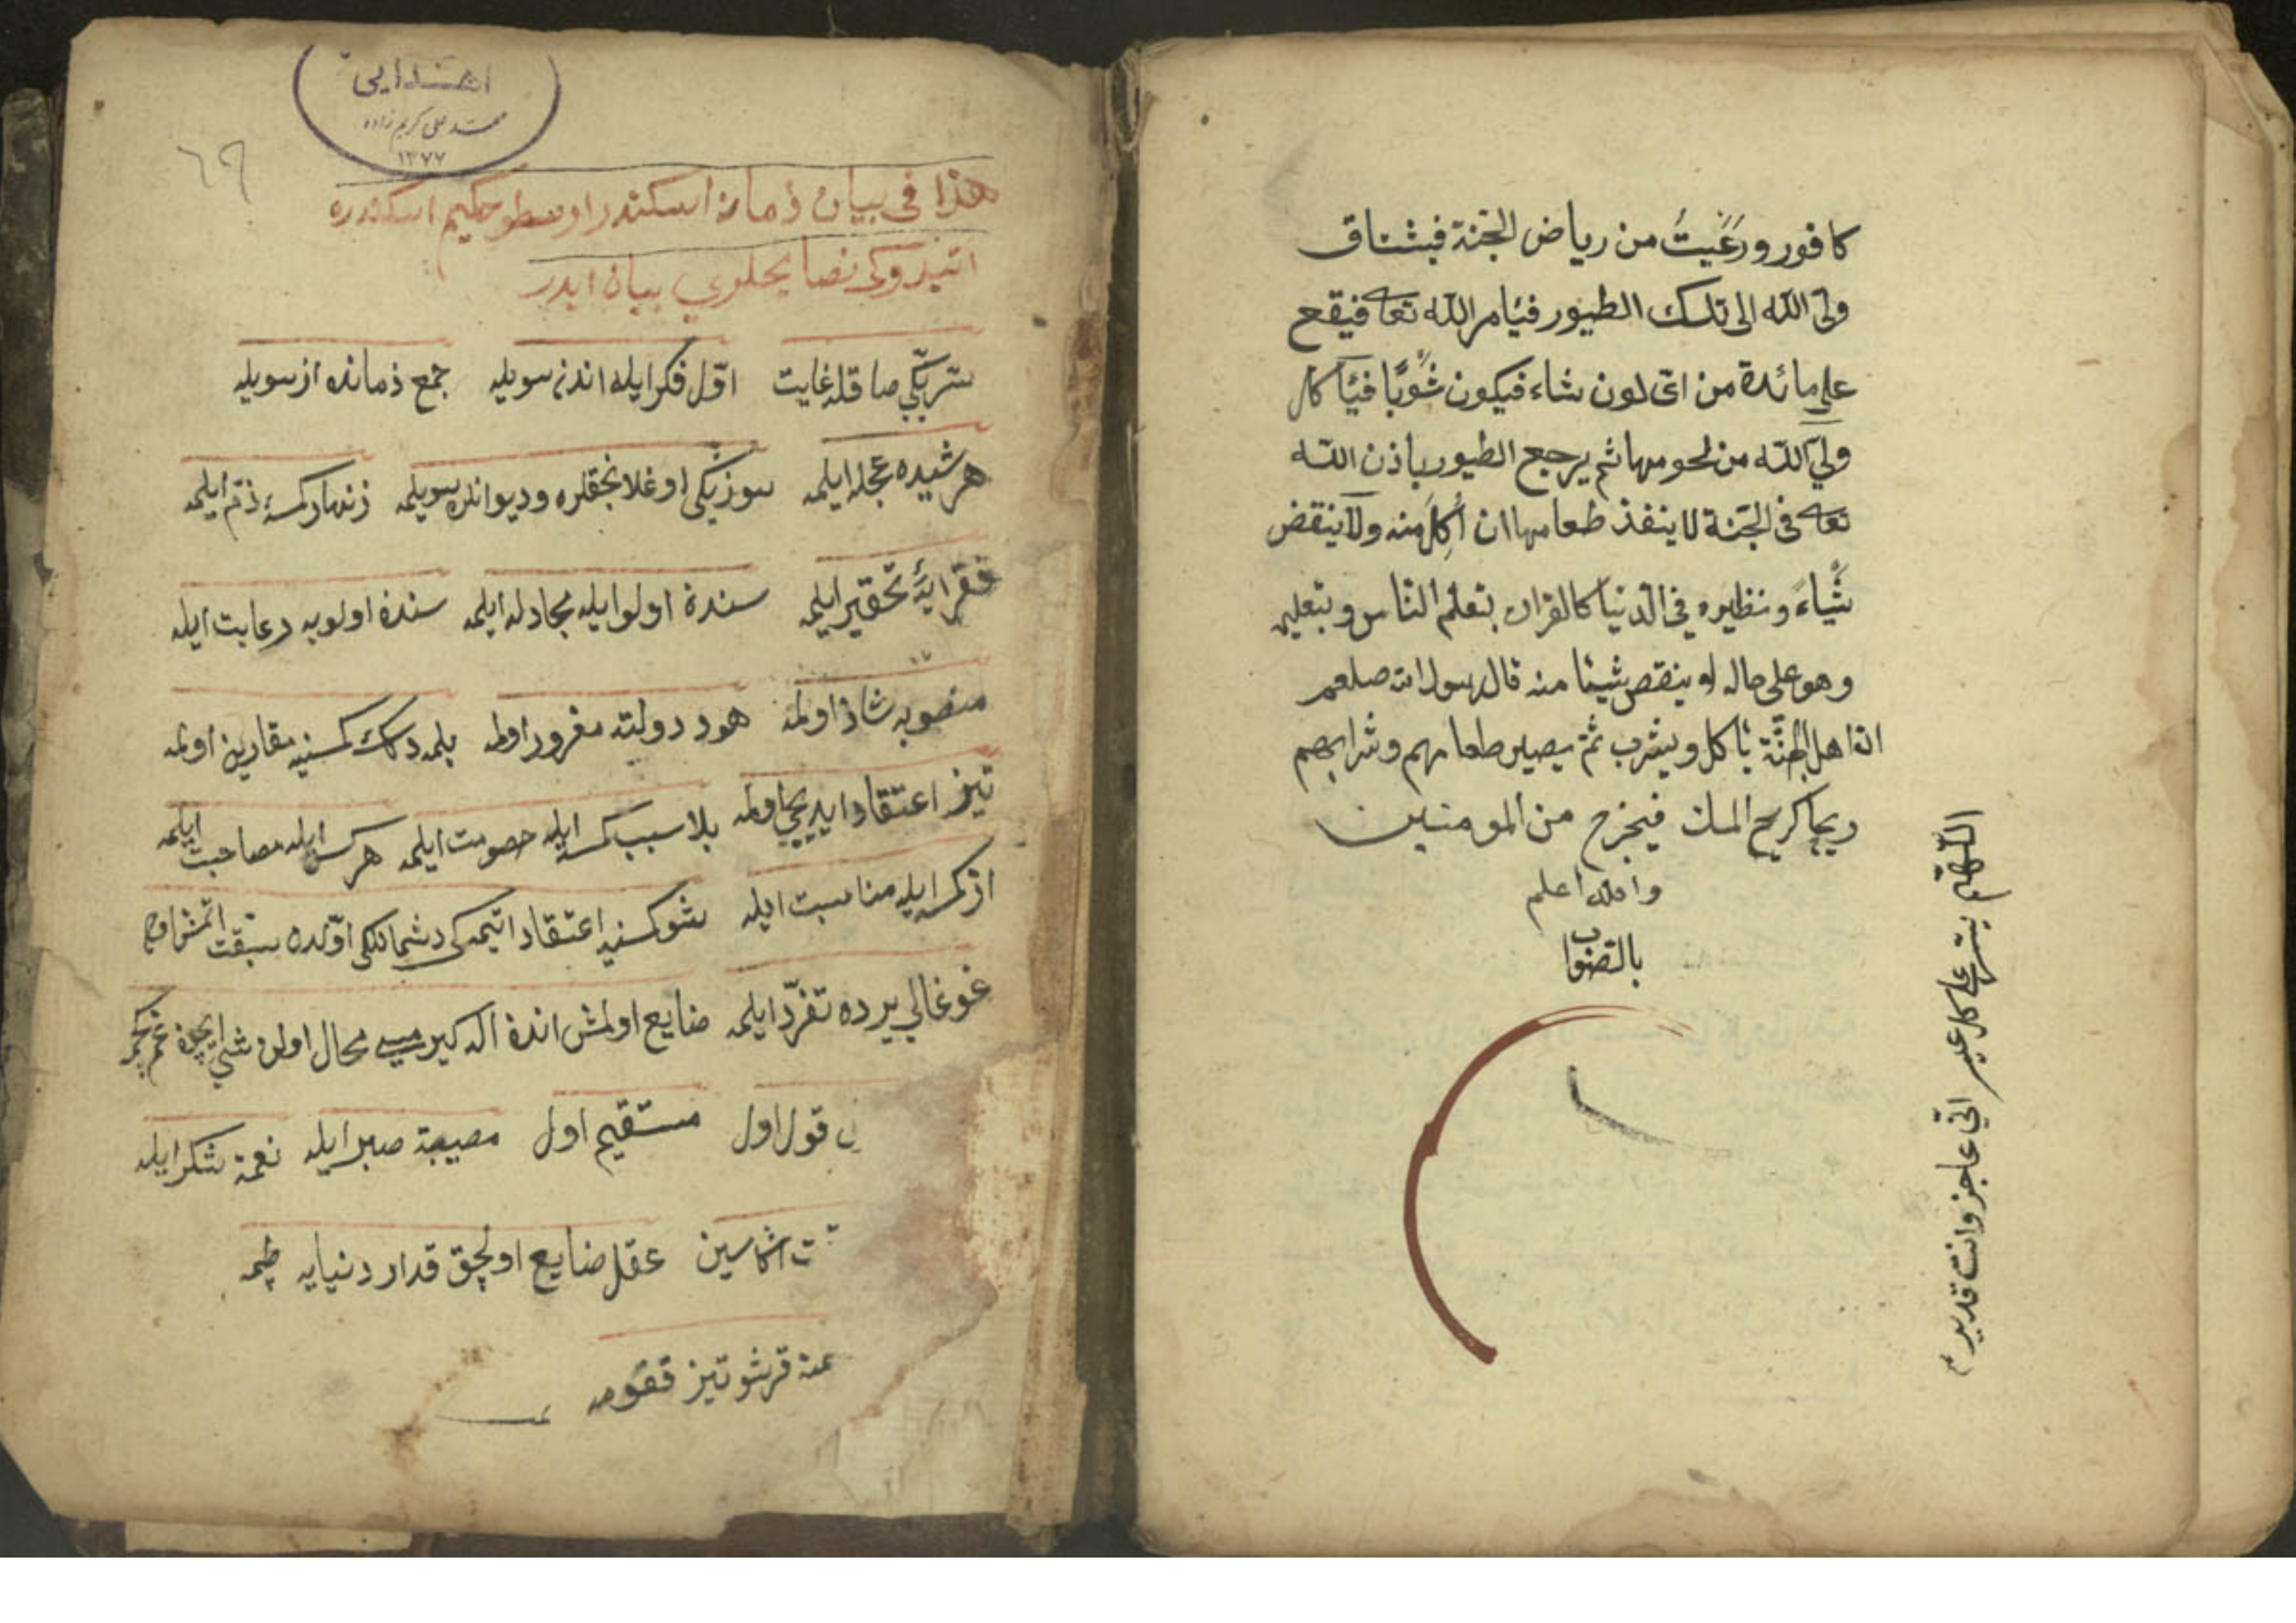 كافور ورَغَيتُ من رياض الجنة فيشتاق
ولي الله الى تلك الطيور فيأمر الله تعا فيقع
على مائدة من اىّ لون شاء فيكون شُوِيًّا فيأكل
ولي الله من لحومها ثم يرجع الطيور باذن الله
تعا فى الجنة لا ينفذ طعامها ان أُكِلَ منه ولا ينقض
شَياءً ونظيره في الدنيا كالقران بتعلم الناس وبتعليم
وهو على حاله لو ينقص شيئا منه قال رسول الله صلعم
ان اهل الجنّة يأكل ويشرب ثمّ يصير طعامهم وشرابهم
ريحا كريح المسك فيخرج من المومنين
والله اعلم
بالصّواب
اللّهمّ يسّر على كل عسير انّي عاجز وانت قدير
اهدايى
محمد على كريم زاده
١٣٧٧
٦٩
هذا فى بيان ذمان اسكندر ارسطو حكيم اسكندره
اتيدوكى نصايحلرى بيان ايدر
سرّيكّى صاقله غايت اوّل فكر ايله اندن سويله جمع ذمانده از سويله
هر شيده عجله ايلمه سوزيكى اوغلانجقلره وديوانلره سويلمه زنهار كمسه ذمّ ايلمه
فقرايه تحقير ايلمه سندة اولو ايله مجادله ايلمه سندة اولويه رعايت ايله
منصوبه شاذ اولمه دولته مغرور اولمه بلمدكك كمسنيه مقارين اولمه
تيز اعتقاد ايديجى اولمه بلا سبب كمسه ايله حصومت ايلمه هر كس ايله مصاحبت ايلمه
از كمسه ايله مناسبت ايله شو كمسنيه اعتقاد اتيمه كى دشمانلكى اوّلده سبقت اتمش اوله
غوغالى يرده تفرّد ايلمه ضايع اولمش اندة اله كيرميه محال اولن شى ايچون غم يمه
قول اول مستقيم اول مصيبة صبر ايله نعمة شكر ايله
عقل ضايع اولجق قدار دنيايه طپمه
قرشو تيز